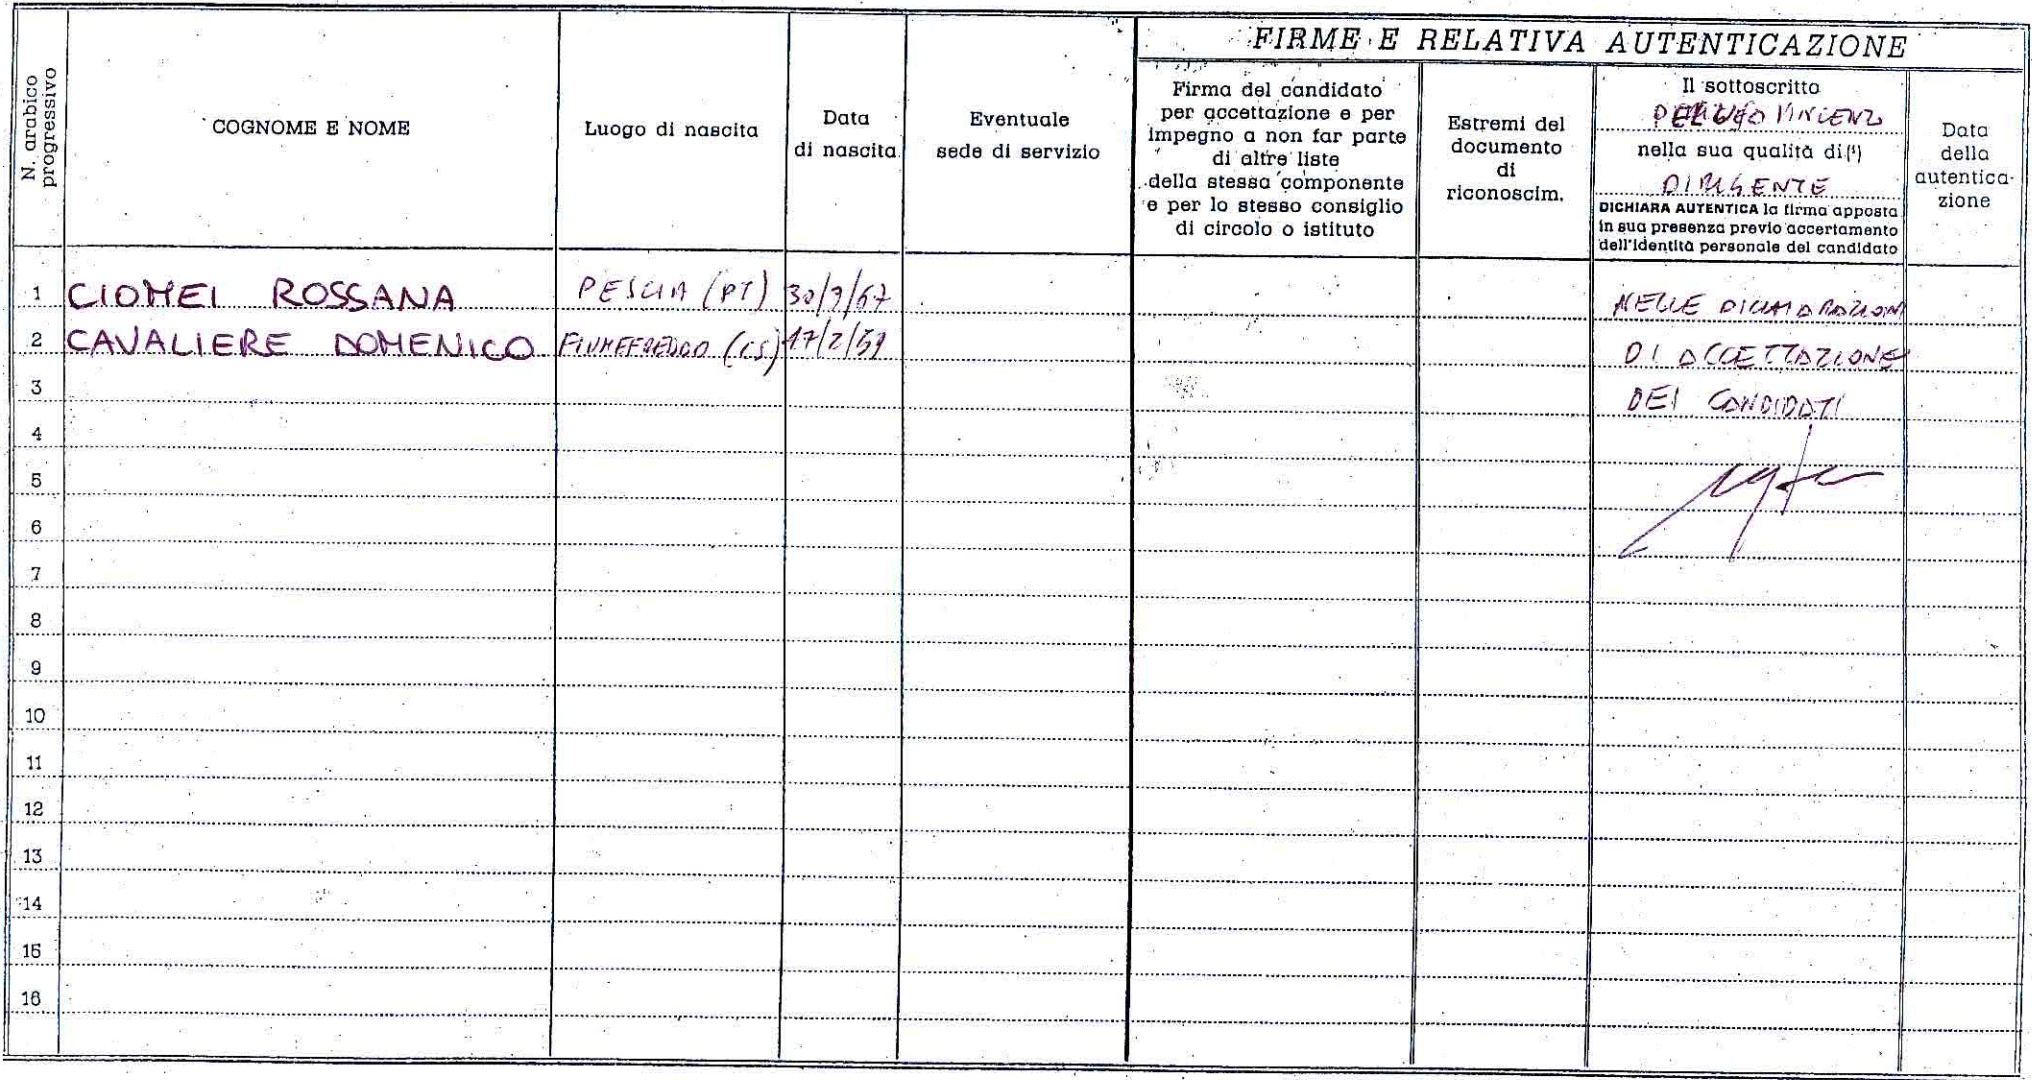 N. arabico progressivo
COGNOME E NOME
Luogo di nascita
Data
di nascita
Eventuale
sede di servizio
FIRME E RELATIVA AUTENTICAZIONE
Firma del candidato
per accettazione e per
impegno a non far parte
di altre liste
della stessa componente
e per lo stesso consiglio
di circolo o istituto
Estremi del
documento
di
riconoscim.
Il sottoscritto
VINCENZO
nella sua qualità di (¹)
DIRIGENTE
DICHIARA AUTENTICA la firma apposta
in sua presenza previo accertamento
dell'identità personale del candidato
Data
della
autentica-
zione
1 CIOMEI ROSSANA PESCIA (PT) 30/9/67 NELLE DICHIARAZIONI
2 CAVALIERE DOMENICO FIUMEFREDDO (CS) 17/2/59 DI ACCETTAZIONE
3 DEI CANDIDATI
4
5
6
7
8
9
10
11
12
13
14
15
16